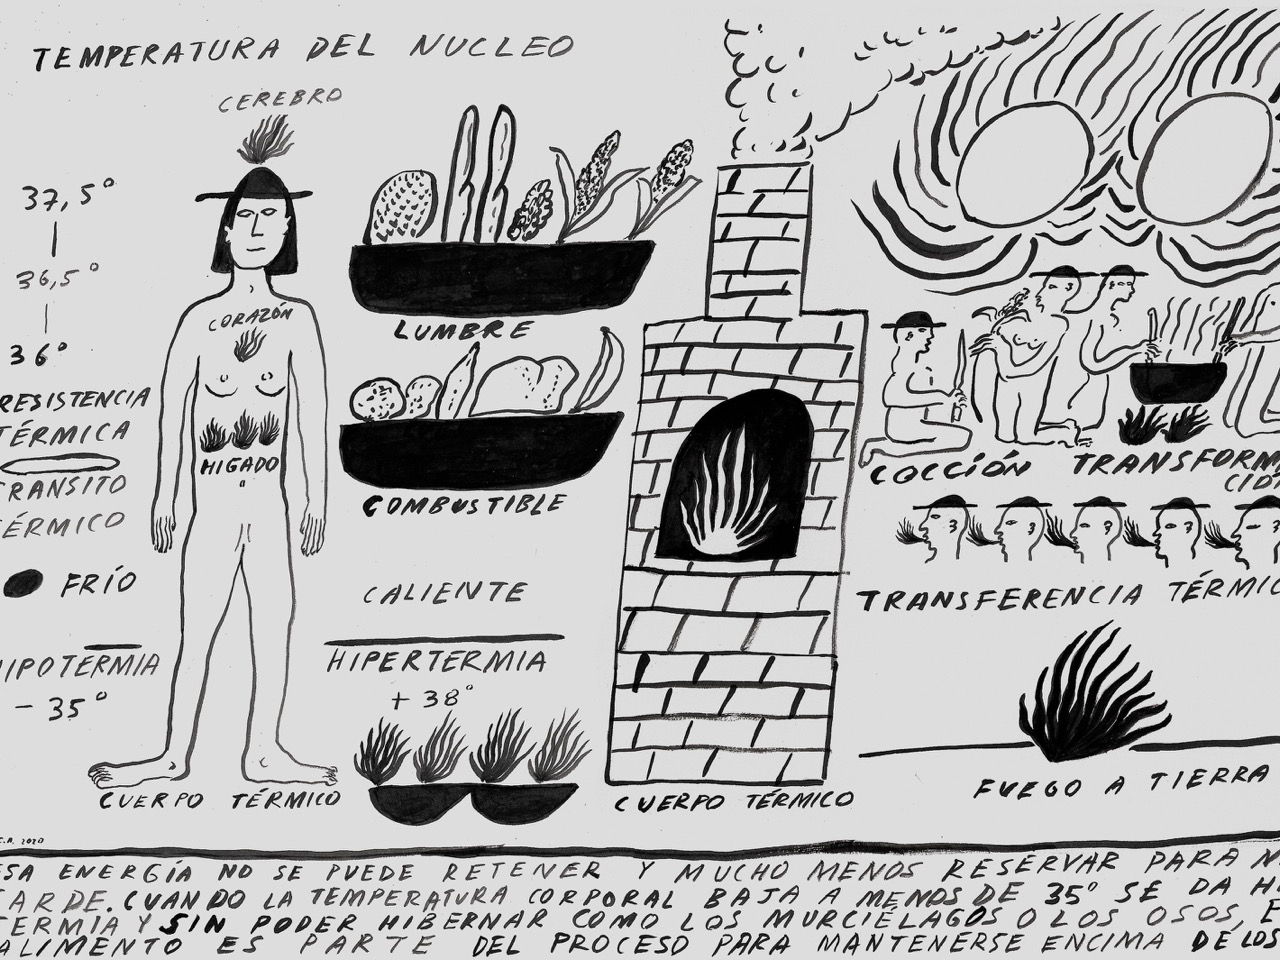 TEMPERATURA DEL NUCLEO
CEREBRO
37,5°
36,5°
36°
RESISTENCIA
TÉRMICA
TRANSITO
TÉRMICO
FRÍO
HIPOTERMIA
- 35°
CORAZÓN
HIGADO
CUERPO TÉRMICO
LUMBRE
COMBUSTIBLE
CALIENTE
HIPERTERMIA
+ 38°
CUERPO TÉRMICO
COCCIÓN
TRANSFORM
CIDA
TRANSFERENCIA TÉRMIC
FUEGO A TIERRA
C.A. 2020
ESA ENERGÍA NO SE PUEDE RETENER Y MUCHO MENOS RESERVAR PARA
TARDE. CUANDO LA TEMPERATURA CORPORAL BAJA A MENOS DE 35° SE DA
TERMIA Y SIN PODER HIBERNAR COMO LOS MURCIÉLAGOS O LOS OSOS, E
ALIMENTO ES PARTE DEL PROCESO PARA MANTENERSE ENCIMA DE LOS